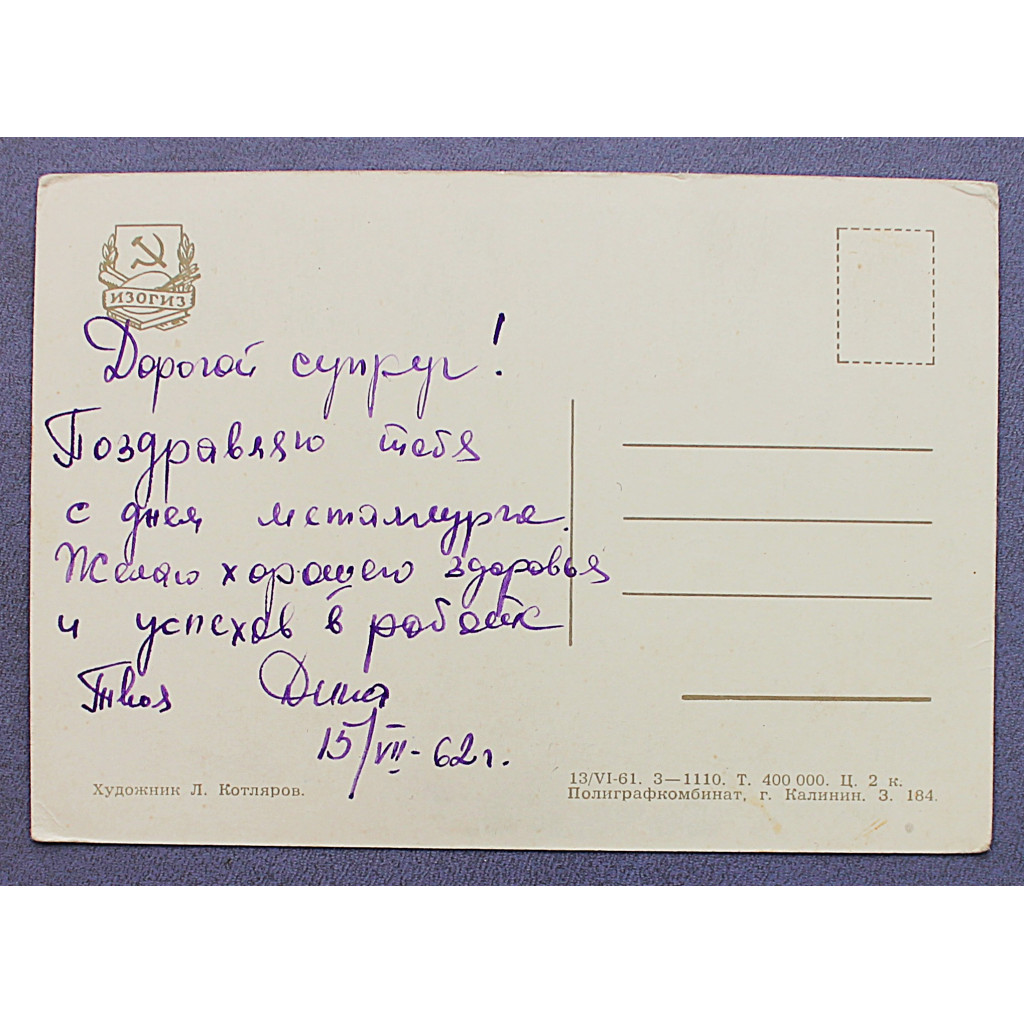 ИЗОГИЗ
Дорогой супруг!
Поздравляю тебя
с днем металлурга.
Желаю хорошего здоровья
и успехов в работе
Твоя Дина
15/VII-62г.
Художник Л. Котляров.
13/VI-61. З—1110. Т. 400 000. Ц. 2 к.
Полиграфкомбинат, г. Калинин. З. 184.